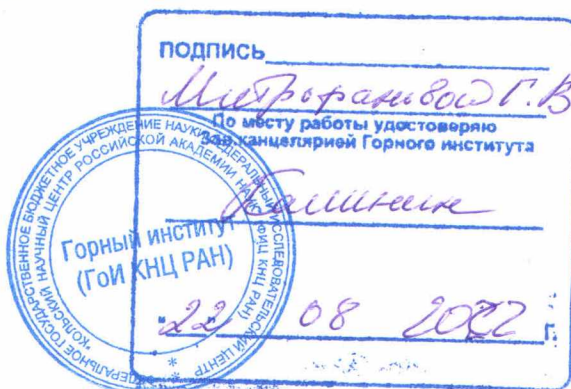 ПОДПИСЬ
Митрофановой Г.В
По месту работы удостоверяю
Зав. канцелярией Горного института
"22" 08 2022 г.
ФЕДЕРАЛЬНОЕ ГОСУДАРСТВЕННОЕ БЮДЖЕТНОЕ УЧРЕЖДЕНИЕ НАУКИ ФЕДЕРАЛЬНЫЙ ИССЛЕДОВАТЕЛЬСКИЙ ЦЕНТР
"КОЛЬСКИЙ НАУЧНЫЙ ЦЕНТР РОССИЙСКОЙ АКАДЕМИИ НАУК" (ФИЦ КНЦ РАН)
Горный институт
(ГоИ КНЦ РАН)